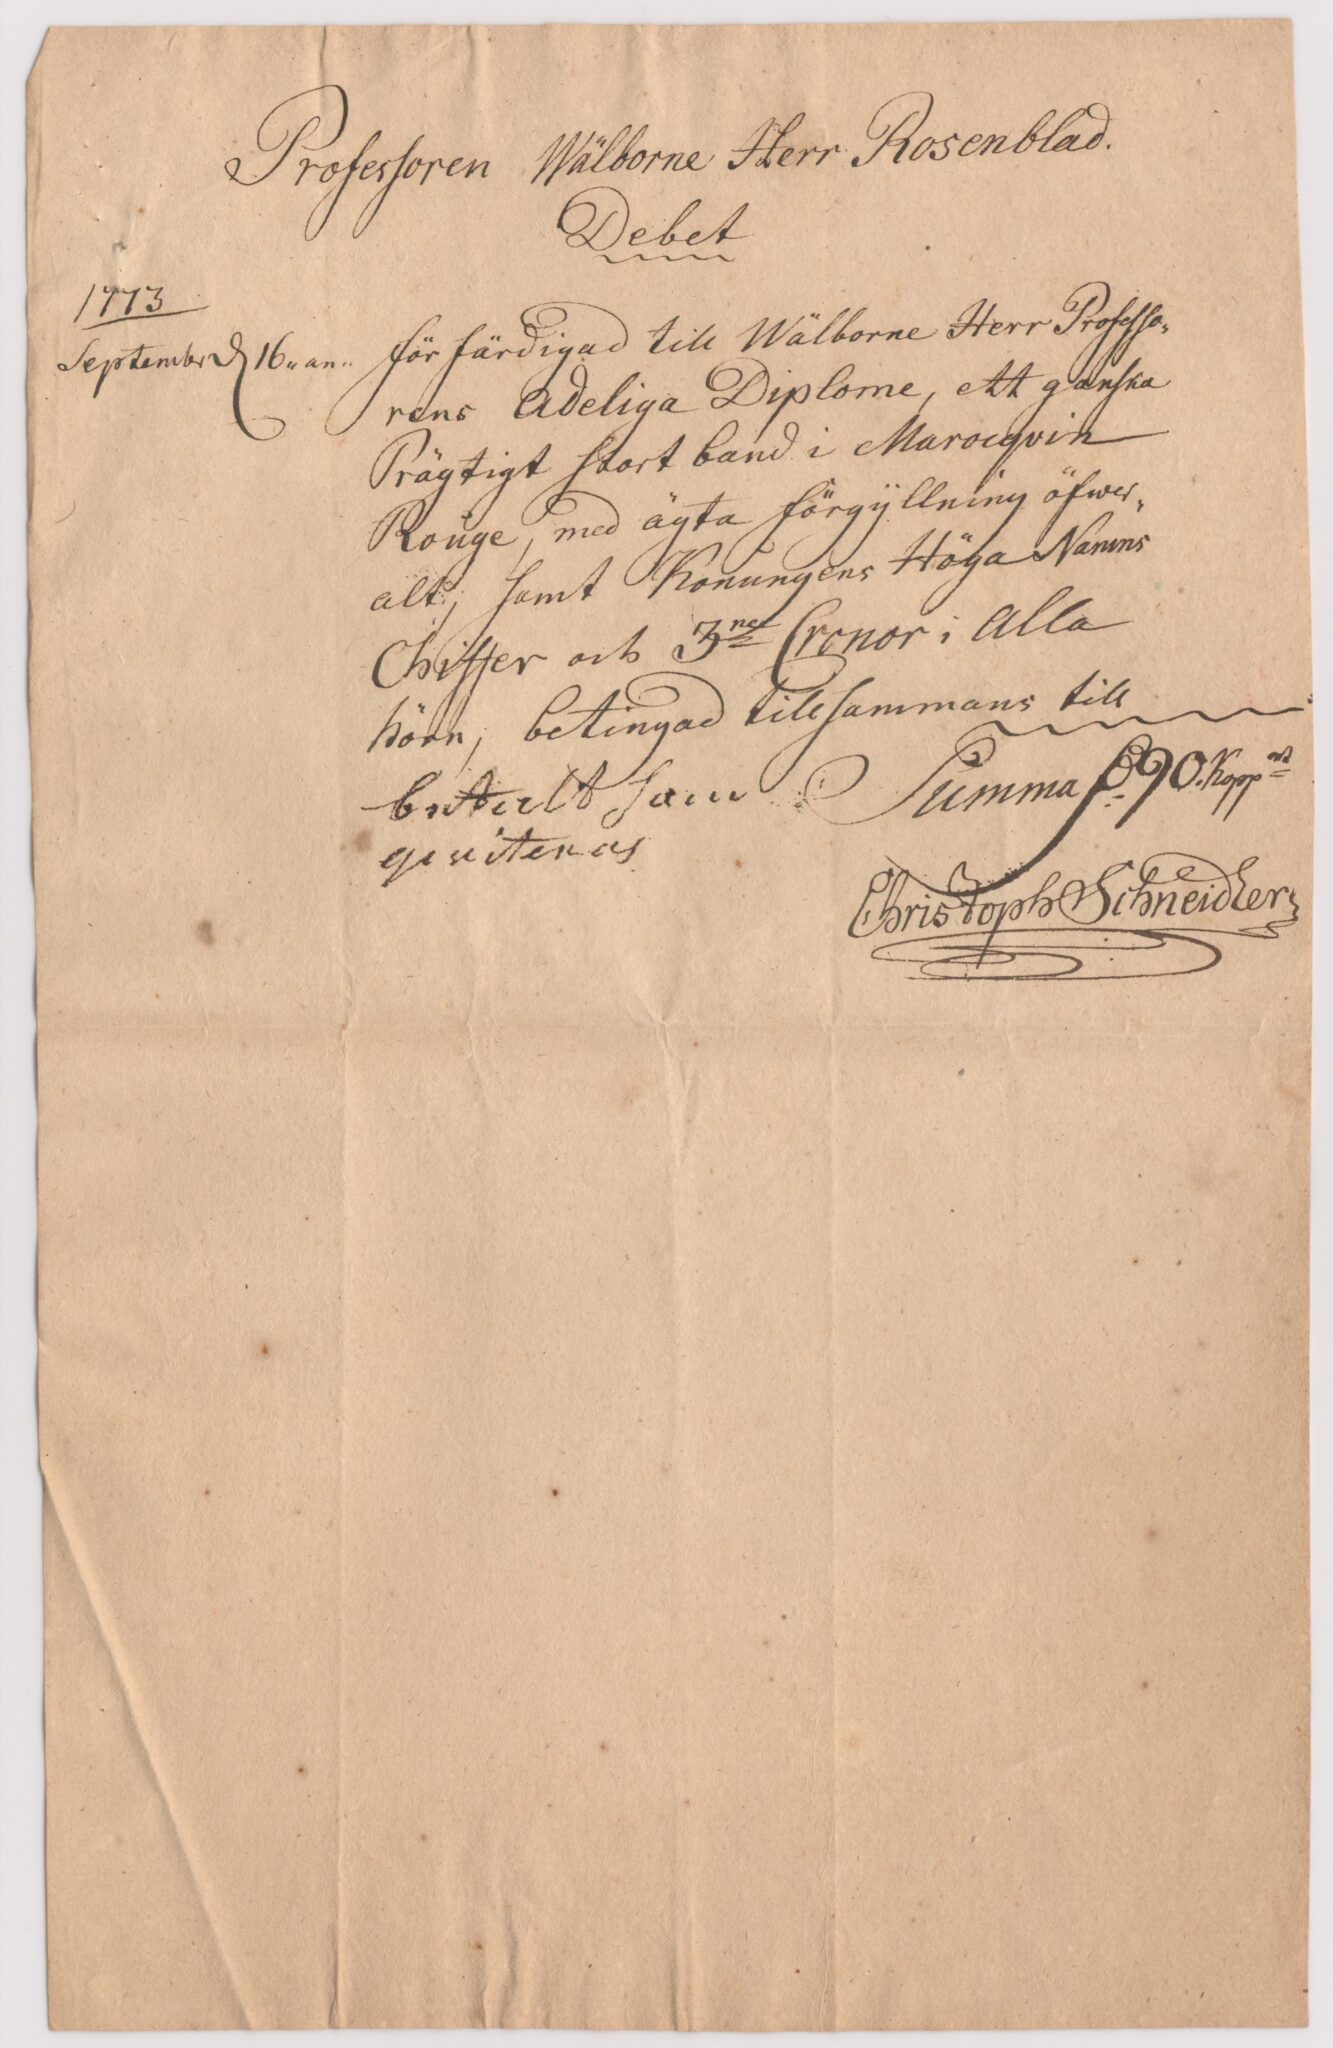 Professoren Wälborne Herr Rosenblad.
Debet
1773
September d 16 an
förfärdigad till Wälborne Herr Professo„
rens Adeliga Diplome, ett ganska
Prägtigt stort band i Marocqvin
Rouge, med ägta förgyllning öfwer„
alt, samt Konungens Höga Namns
Chiffer och 3ne Cronor i Alla
hörn, betingad tillsammans till
Summa 90. Kopp mt
betalt som
qviteras
Christoph Schneidler